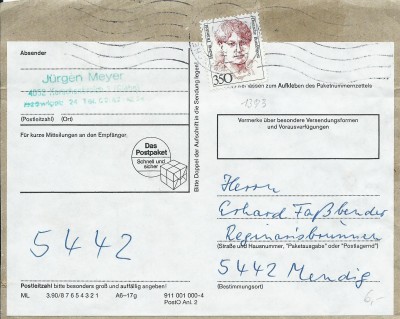 Absender
Jürgen Meyer
(Postleitzahl) (Ort)
Für kurze Mitteilungen an den Empfänger.
Das
Postpaket
Schnell und
sicher
5442
Postleitzahl bitte besonders groß und auffällig angeben!
ML 3.90/8 7 6 5 4 3 2 1 A6–17g 911 001 000-4
PostO Anl. 2
Bitte Doppel der Aufschrift in die Sendung legen!
350
lassen zum Aufkleben des Paketnummernzettels
Vermerke über besondere Versendungsformen
und Vorausverfügungen
Herrn
Erhard Faßbender
Reginarisbrunnen
(Straße und Hausnummer, "Paketausgabe" oder "Postlagernd")
5442 Mendig
(Bestimmungsort)
6,-